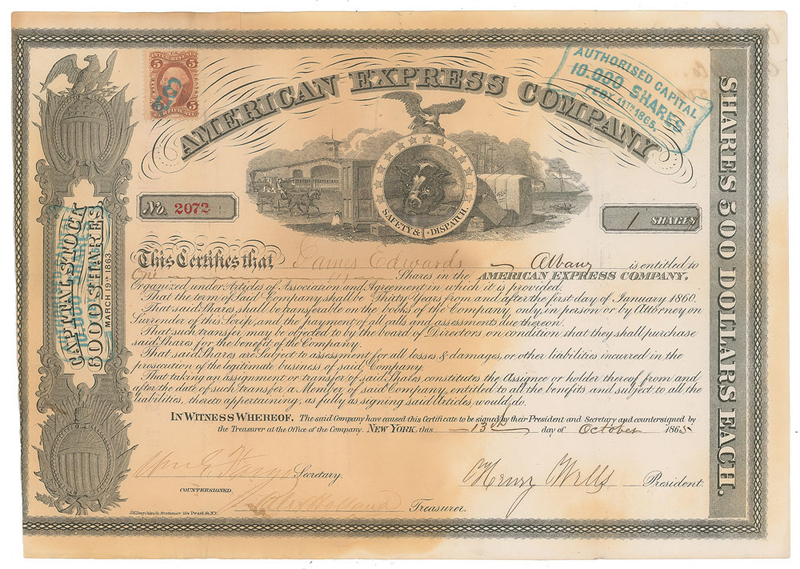 AMERICAN EXPRESS COMPANY
5 5
AUTHORISED CAPITAL
10.000 SHARES
FEBY 11TH 1865.
SAFETY & DISPATCH
No. 2072
1 SHARES
CAPITAL STOCK
8000 SHARES
MARCH 19TH 1863
SHARES 500 DOLLARS EACH.
This Certifies that James Edwards Albany is entitled to
One Shares in the AMERICAN EXPRESS COMPANY,
Organized under Articles of Association and Agreement in which it is provided,
That the term of Said Company shall be Thirty Years from and after the first day of January 1860.
That said Shares shall be transferable on the books of the Company, only, in person or by Attorney on
Surrender of this Scrip, and the payment of all calls and assessments due thereon.
That such transfer may be acted to by the board of Directors on condition that they shall purchase
said Shares for the benefit of the Company.
That said Shares are Subject to assessment for all losses & damages, or other liabilities incurred in the
prosecution of the legitimate business of said Company.
That taking an assignment or transfer of said Shares, constitutes the Assignee or holder thereof from and
after the date of such transfer, a Member of said Company, entitled to all the benefits and subject to all the
liabilities, thereto appertaining, as fully as signing said Articles would do.
IN WITNESS WHEREOF. The said Company have caused this Certificate to be signed by their President and Secretary and countersigned by
the Treasurer at the Office of the Company. NEW YORK, this 13th day of October 1865
Wm G Fargo Secretary. Henry Wells President.
COUNTERSIGNED,
Treasurer.